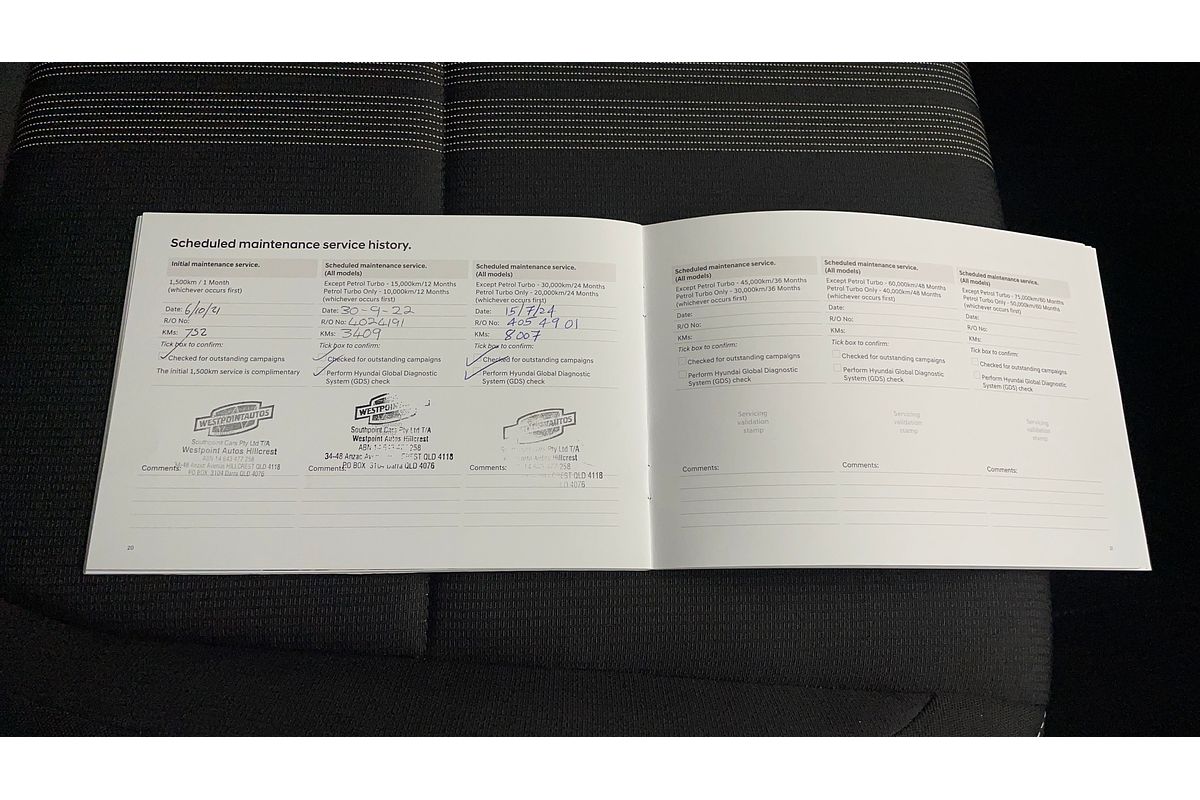 Scheduled maintenance service history.
Initial maintenance service.
1,500km / 1 Month
(whichever occurs first)
Date: 6/10/21
R/O No:
KMs: 752
Tick box to confirm:
Checked for outstanding campaigns
The initial 1,500km service is complimentary
WESTPOINTAUTOS
Southpoint Cars Pty Ltd T/A
Westpoint Autos Hillcrest
ABN 14 643 477 258
34-48 Anzac Avenue HILLCREST QLD 4118
PO BOX 3104 Darra QLD 4076
Comments:
Scheduled maintenance service.
(All models)
Except Petrol Turbo - 15,000km/12 Months
Petrol Turbo Only - 10,000km/12 Months
(whichever occurs first)
Date: 30-9-22
R/O No: 4024191
KMs: 3409
Tick box to confirm:
Checked for outstanding campaigns
Perform Hyundai Global Diagnostic
System (GDS) check
Southpoint Cars Pty Ltd T/A
Westpoint Autos Hillcrest
ABN 14 643 477 258
34-48 Anzac QLD 4118
PO BOX 3104 Darra QLD 4076
Comments:
Scheduled maintenance service.
(All models)
Except Petrol Turbo - 30,000km/24 Months
Petrol Turbo Only - 20,000km/24 Months
(whichever occurs first)
Date: 15/7/24
R/O No: 4054901
KMs: 8007
Tick box to confirm:
Checked for outstanding campaigns
Perform Hyundai Global Diagnostic
System (GDS) check
WESTPOINTAUTOS
Pty Ltd T/A
Autos Hillcrest
477 258
QLD 4118
4076
Comments:
20
Scheduled maintenance service.
(All models)
Except Petrol Turbo - 45,000km/36 Months
Petrol Turbo Only - 30,000km/36 Months
(whichever occurs first)
Date:
R/O No:
KMs:
Tick box to confirm:
Checked for outstanding campaigns
Perform Hyundai Global Diagnostic
System (GDS) check
Servicing
validation
stamp
Comments:
Scheduled maintenance service.
(All models)
Except Petrol Turbo - 60,000km/48 Months
Petrol Turbo Only - 40,000km/48 Months
(whichever occurs first)
Date:
R/O No:
KMs:
Tick box to confirm:
Checked for outstanding campaigns
Perform Hyundai Global Diagnostic
System (GDS) check
Servicing
validation
stamp
Comments:
Scheduled maintenance service.
(All models)
Except Petrol Turbo - 75,000km/60 Months
Petrol Turbo Only - 50,000km/60 Months
(whichever occurs first)
Date:
R/O No:
KMs:
Tick box to confirm:
Checked for outstanding campaigns
Perform Hyundai Global Diagnostic
System (GDS) check
Servicing
validation
stamp
Comments: